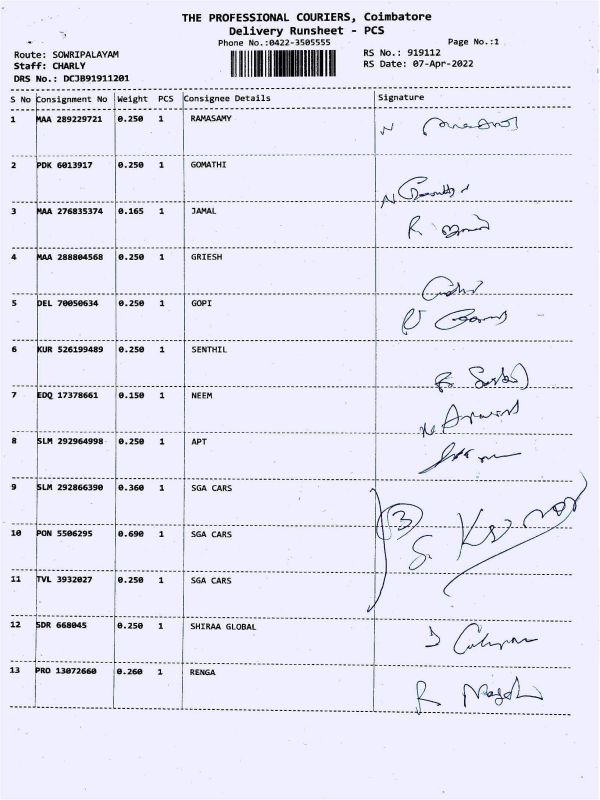 THE PROFESSIONAL COURIERS, Coimbatore
Delivery Runsheet - PCS
Phone No.:0422-3505555 Page No.:1
Route: SOWRIPALAYAM RS No.: 919112
Staff: CHARLY RS Date: 07-Apr-2022
DRS No.: DCJB91911201
S No Consignment No Weight PCS Consignee Details Signature
1 MAA 289229721 0.250 1 RAMASAMY
2 PDK 6013917 0.250 1 GOMATHI
3 MAA 276835374 0.165 1 JAMAL
4 MAA 288804568 0.250 1 GRIESH
5 DEL 70050634 0.250 1 GOPI
6 KUR 526199489 0.250 1 SENTHIL
7 EDQ 17378661 0.150 1 NEEM
8 SLM 292964998 0.250 1 APT
9 SLM 292866390 0.360 1 SGA CARS
10 PON 5506295 0.690 1 SGA CARS
3
11 TVL 3932027 0.250 1 SGA CARS
12 SDR 668045 0.250 1 SHIRAA GLOBAL
13 PRO 13072660 0.260 1 RENGA